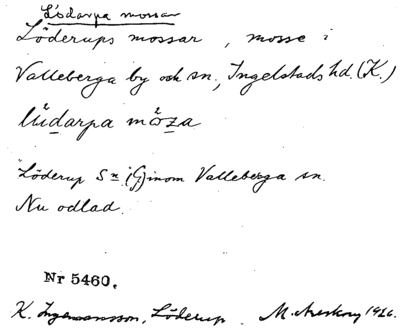 Lödarpa mossar
Löderups mossar, mosse i
Valleberga by och sn, Ingelstads hd. (K.)
lǜdarpa mö̀za
Löderup Sn (G) inom Valleberga sn.
Nu odlad.
Nr 5460.
K. Ingemansson, Löderup. M. Areskog 1926.